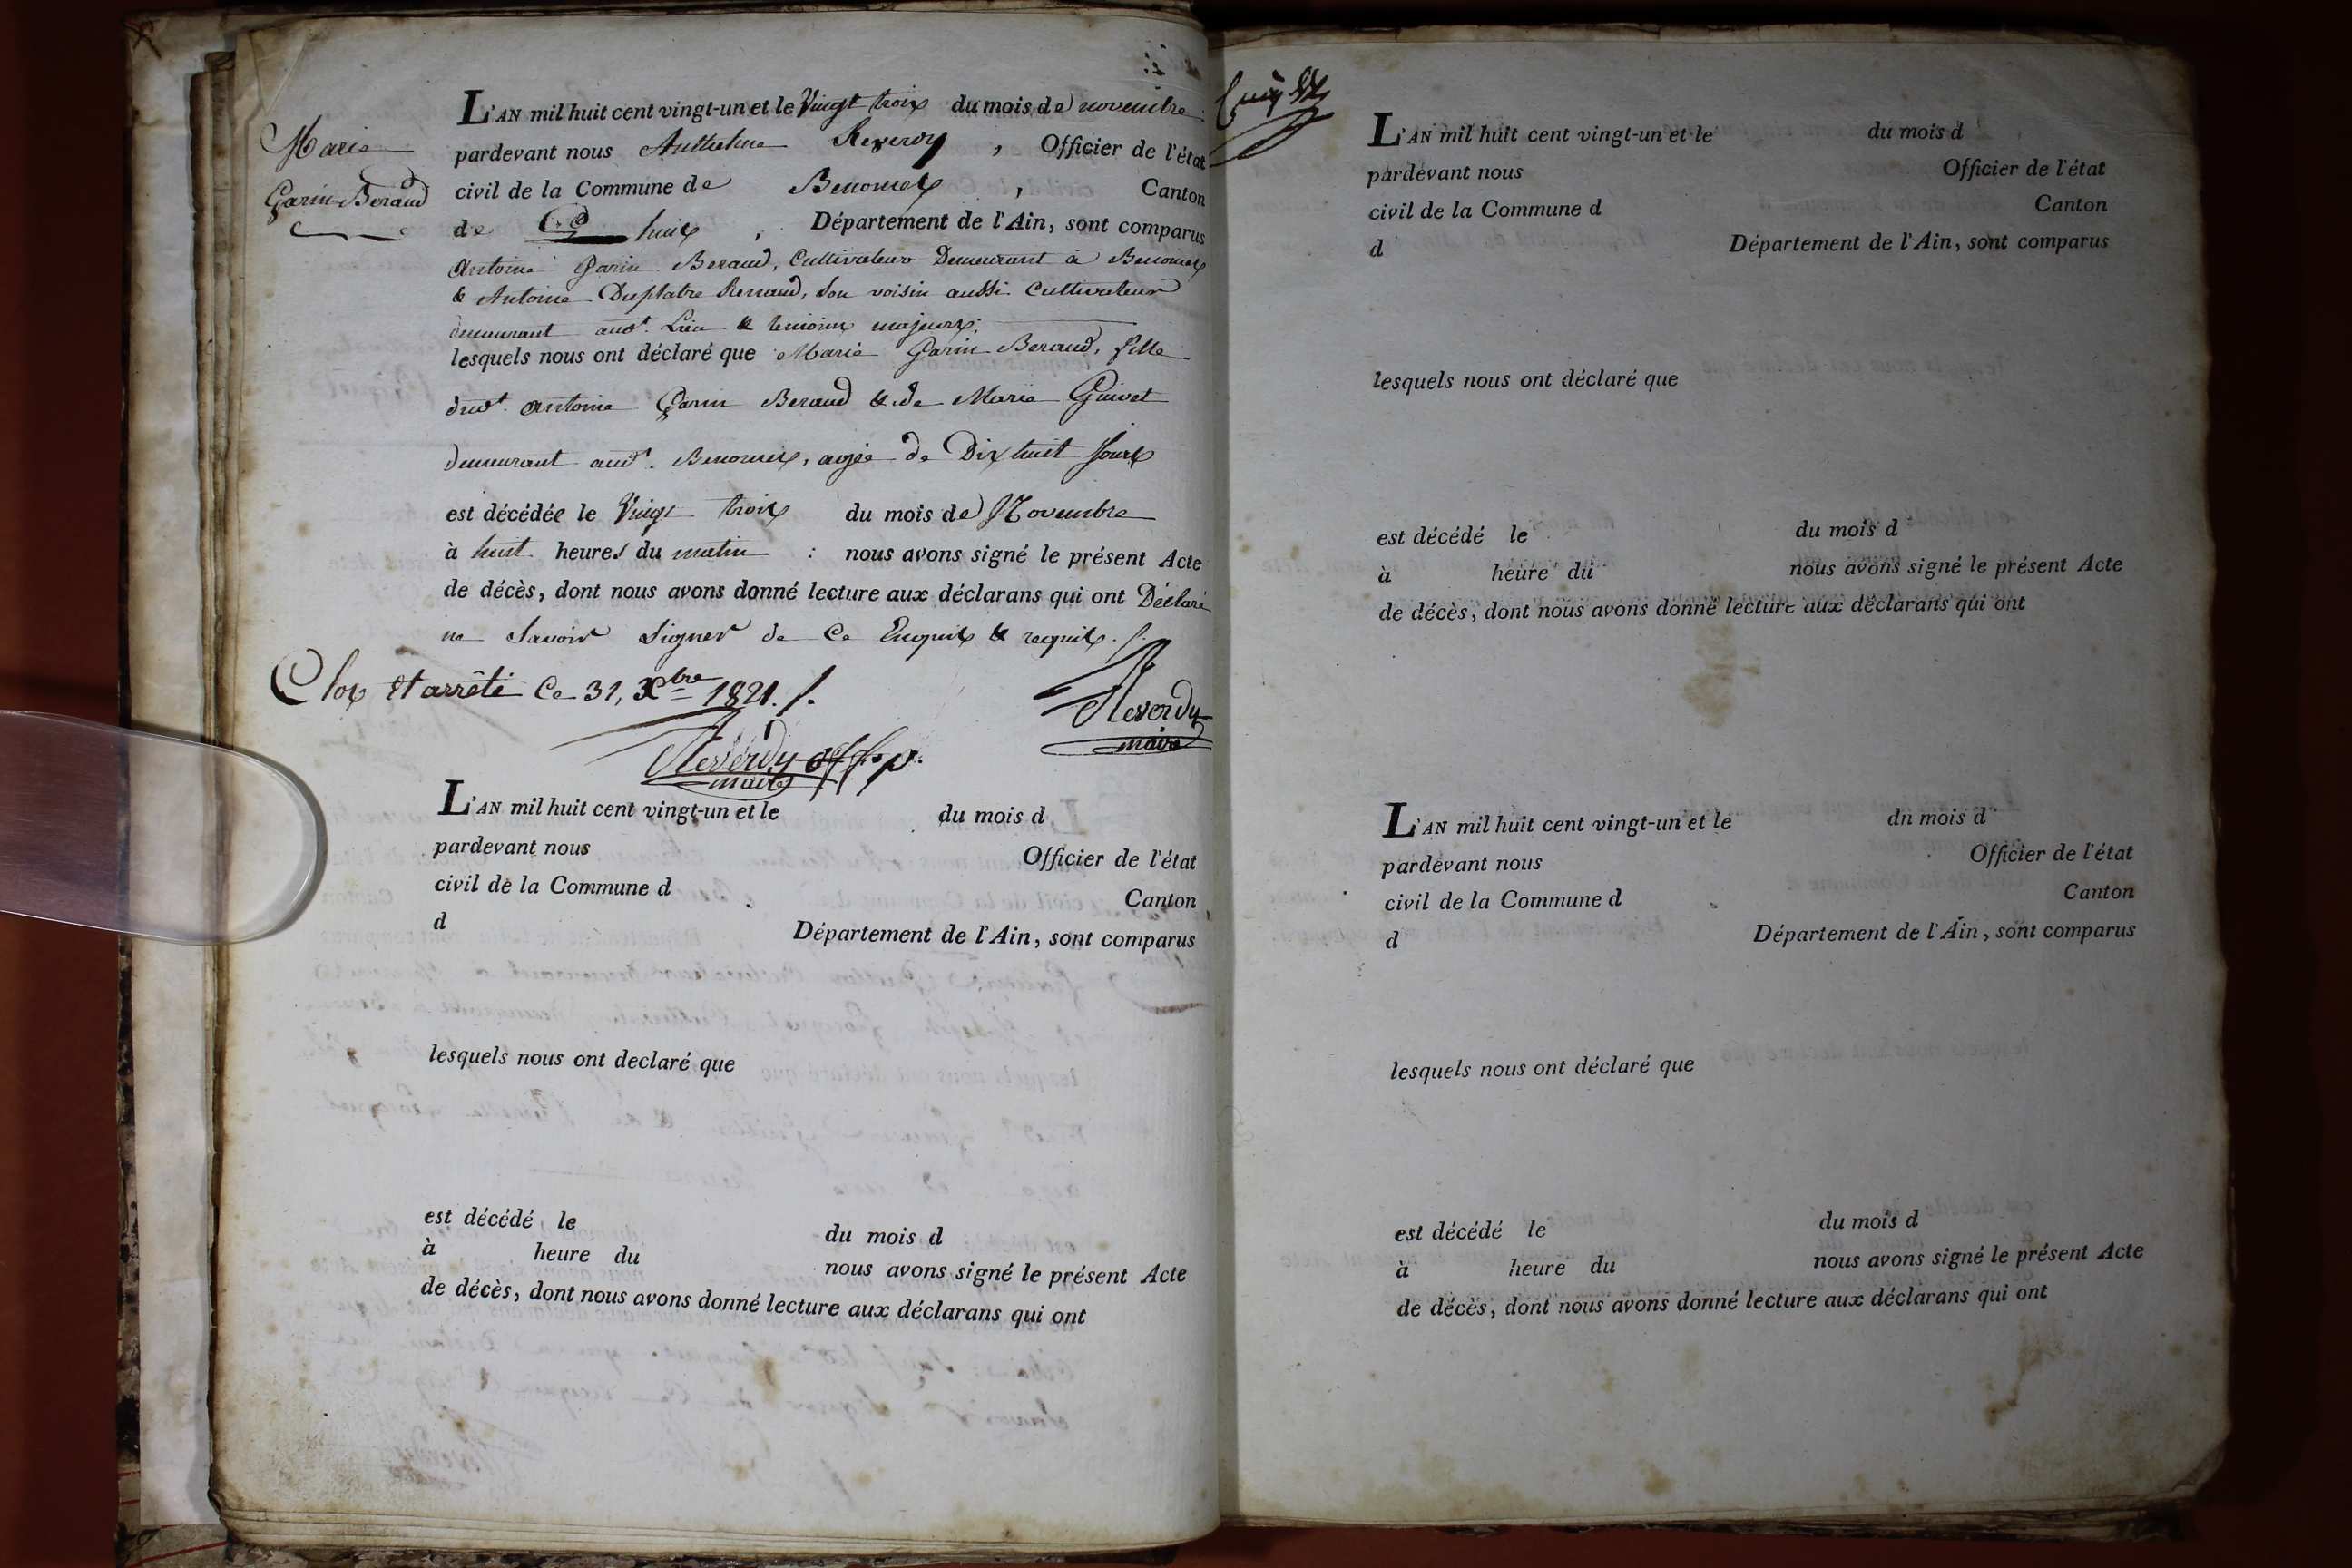 Marie
Garin-Beraud
L'AN mil huit cent vingt-un et le Vingt trois du mois de novembre
pardevant nous Anthelme Reverdy, Officier de l'état
civil de la Commune de Benonces, Canton
de huis, Département de l'Ain, sont comparus
Antoine Garin Beraud, Cultivateur Demeurant à Benonces
& Antoine Duplatre Renaud, son voisin aussi Cultivateur
demeurant aud.t Lieu & temoins majeurs;
lesquels nous ont déclaré que Marie Garin Beraud, fille
dud.t Antoine Garin Beraud & de Marie Guivet
demeurant aud.t Benonces, agée de Dix huit jours
est décédée le Vingt trois du mois de Novembre
à huit heures du matin : nous avons signé le présent Acte
de décès, dont nous avons donné lecture aux déclarans qui ont Déclaré
ne Savoir Signer de Ce Enquis & requis ./.
Clos et arrêté Ce 31, Xbre 1821. /.
Reverdy
maire
Reverdy
maire
L'AN mil huit cent vingt-un et le du mois d
pardevant nous Officier de l'état
civil de la Commune d Canton
d Département de l'Ain, sont comparus
lesquels nous ont declaré que
est décédé le du mois d
à heure du nous avons signé le présent Acte
de décès, dont nous avons donné lecture aux déclarans qui ont
L'AN mil huit cent vingt-un et le du mois d
pardevant nous Officier de l'état
civil de la Commune d Canton
d Département de l'Ain, sont comparus
lesquels nous ont déclaré que
est décédé le du mois d
à heure du nous avons signé le présent Acte
de décès, dont nous avons donné lecture aux déclarans qui ont
L'AN mil huit cent vingt-un et le dn mois d
pardevant nous Officier de l'état
civil de la Commune d Canton
d Département de l'Ain, sont comparus
lesquels nous ont déclaré que
est décédé le du mois d
à heure du nous avons signé le présent Acte
de décès, dont nous avons donné lecture aux déclarans qui ont